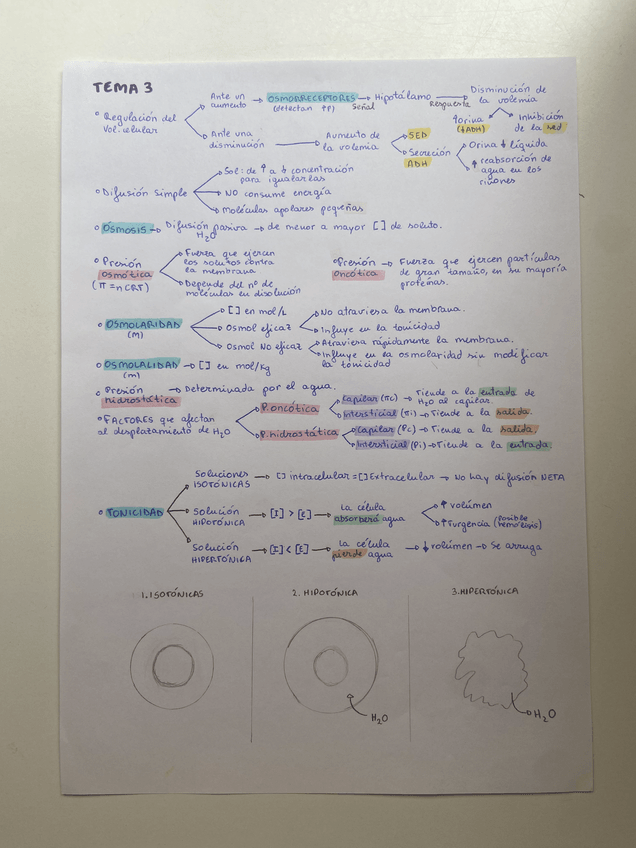 TEMA 3
Ante un aumento → OSMORRECEPTORES (detectan ↑P) → Señal Hipotálamo → Respuesta Disminución de la volemia
° Regulación del vol. celular
↑orina (↓ADH)
Inhibición de la sed
Ante una disminución → Aumento de la volemia
SED
Secreción ADH
Orina ↓ líquida
↑ reabsorción de agua en los riñones
° Difusión simple
Sol: de ↑ a ↓ concentración para igualarlas
NO consume energía
Moléculas apolares pequeñas
° ÓSMOSIS → Difusión pasiva H₂O → de menor a mayor [ ] de soluto.
° Presión osmótica (π = nCRT)
Fuerza que ejercen los solutos contra la membrana
Depende del nº de moléculas en disolución
° Presión oncótica → Fuerza que ejercen partículas de gran tamaño, en su mayoría proteínas.
° OSMOLARIDAD (M)
[ ] en mol/L
Osmol eficaz
No atraviera la membrana.
Influye en la tonicidad
Osmol No eficaz
Atraviera rápidamente la membrana.
Influye en la osmolaridad sin modificar la tonicidad
° OSMOLALIDAD (m) → [ ] en mol/kg
° Presión hidrostática → Determinada por el agua.
° FACTORES que afectan al desplazamiento de H₂O
P. oncótica
Capilar (πc) → Tiende a la entrada de H₂O al capilar.
Intersticial (πi) → Tiende a la salida.
P. hidrostática
Capilar (Pc) → Tiende a la salida.
Intersticial (Pi) → Tiende a la entrada
° TONICIDAD
Soluciones ISOTÓNICAS → [ ] intracelular = [ ] Extracelular → No hay difusión NETA
Solución HIPOTÓNICA → [I] > [E] → La célula absorberá agua
↑ volúmen
↑ Turgencia (posible hemólisis)
Solución HIPERTÓNICA → [I] < [E] → La célula pierde agua → ↓ volúmen → Se arruga
1. ISOTÓNICAS
2. HIPOTÓNICA
3. HIPERTÓNICA
H₂O
H₂O